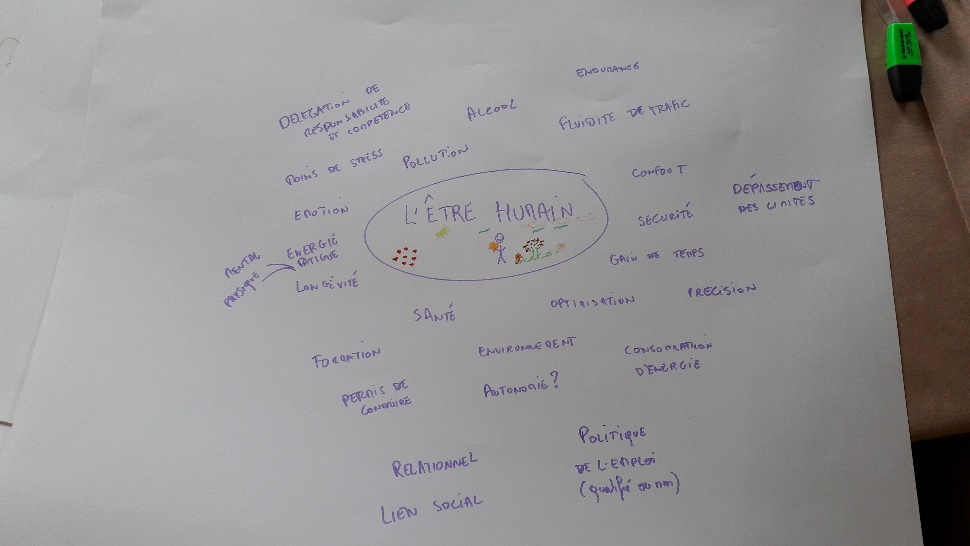 ENDURANCE
DELEGATION DE
RESPONSABILITÉ
ET COMPETENCE
ALCOOL
FLUIDITÉ DE TRAFIC
MOINS DE STRESS
POLLUTION
CONFORT
DÉPASSEMENT
DES LIMITES
EMOTION
L'ÊTRE HUMAIN
SÉCURITÉ
MENTAL
PHYSIQUE
ENERGIE
FATIGUE
GAIN DE TEMPS
LONGÉVITÉ
SANTÉ
OPTIMISATION
PRECISION
FORMATION
ENVIRONNEMENT
CONSOMMATION
D'ÉNERGIE
PERMIS DE
CONDUIRE
AUTONOMIE?
RELATIONNEL
POLITIQUE
DE L'EMPLOI
(qualifié ou non)
LIEN SOCIAL